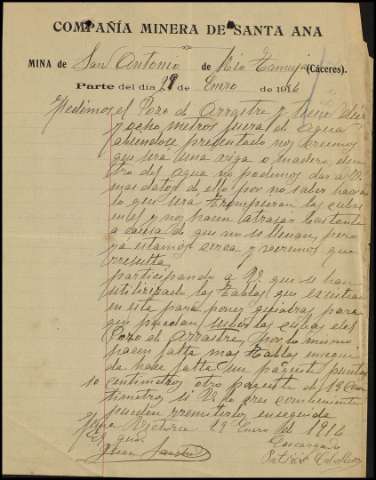 COMPAÑÍA MINERA DE SANTA ANA
MINA de San Antonio de Rio Tamuja (Cáceres).
Parte del día 29 de Enro de 1916
Medimos el Pozo de Arrastre y tiene Diez
y ocho metros fuera de agua
abiendose presentado nos creemos
que sera una viga o madera den
tro del agua no podemos dar a V.
mas datos de ello por no saber
lo que sera tronpieran las cubas
en el y nos hacen atrasar bastante
a causa de que no se llenan, pero
ya estamos cerca y veremos que
rresulta
participando a V. que se han
utilizado las tablas que
en esta para poner guiadras para
que puedan subir las cubas del
Pozo de Arrastre, por lo mismo
hacen falta mas tablas
le hace falta un paquete puntas
10 centimetros otro paquete de 15 Cen
timetros si V. lo cree combeniente
pueden rremitirlos enseguida
29 Enro de 1916
El
Encargado